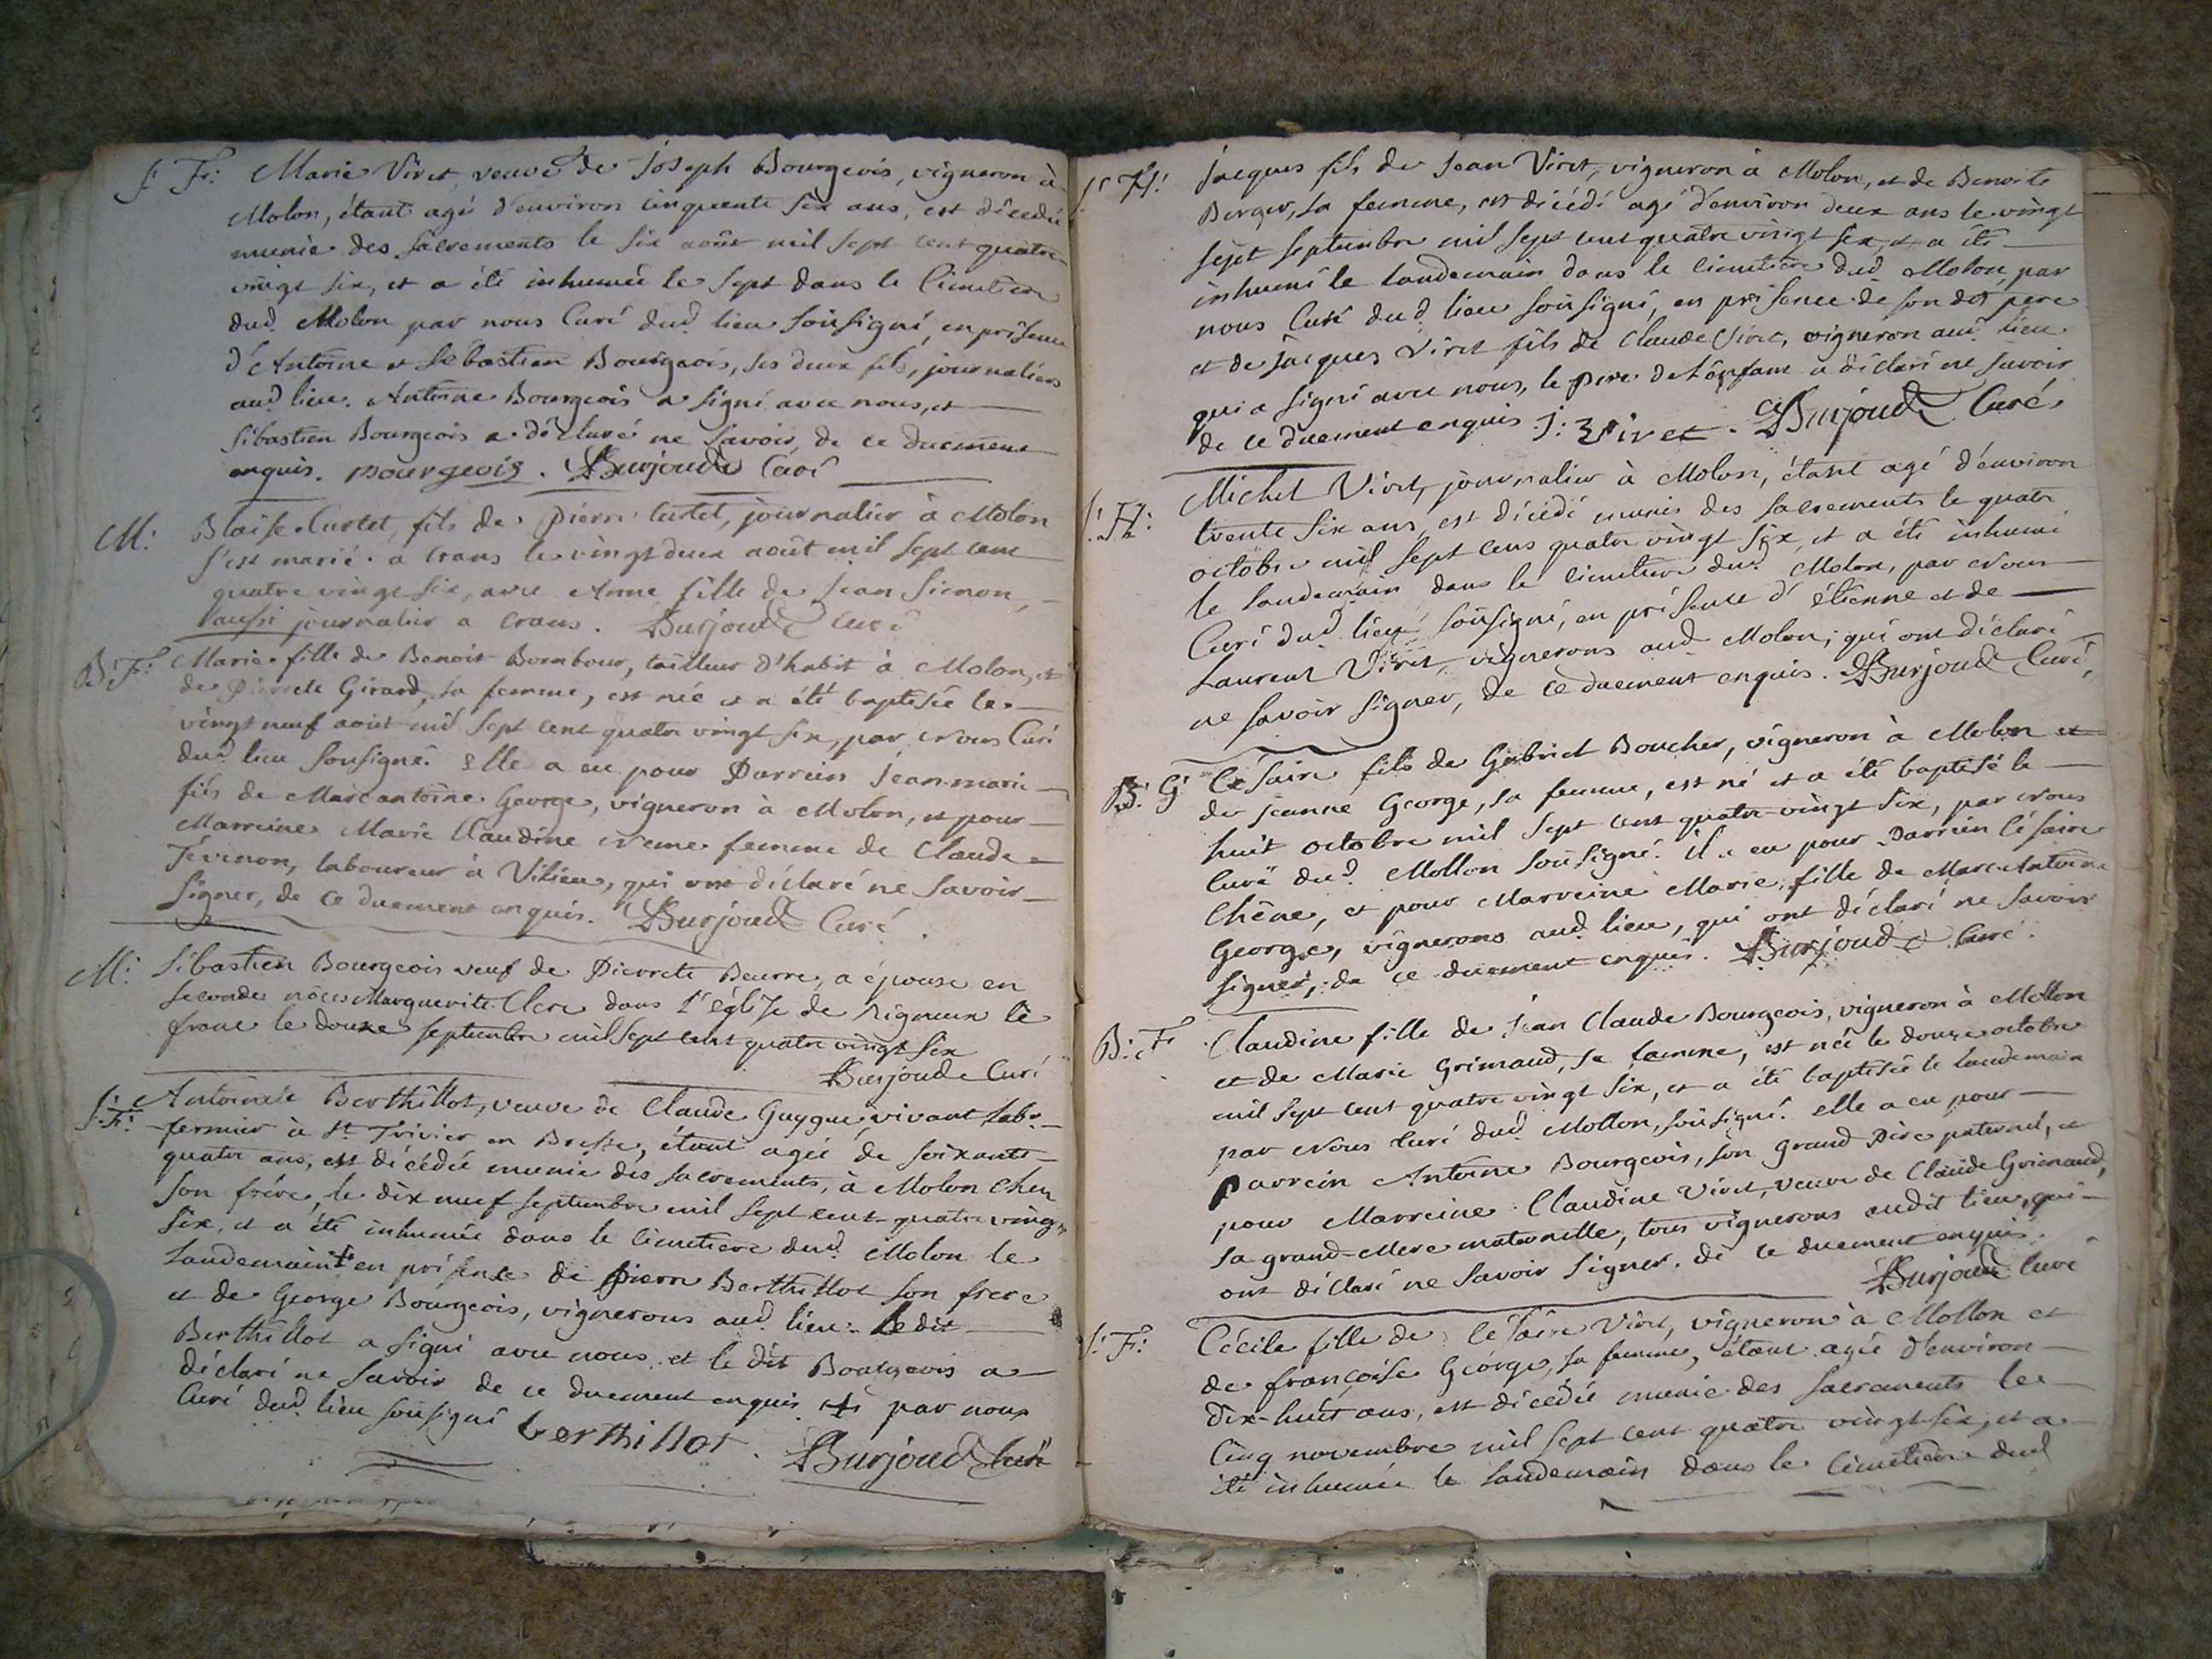 S: F: Marie Viret, veuve de Joseph Bourgeois, vigneron à
Molon, étant agée d'environ cinquante six ans, est décédée
munie des sacrements le six août mil sept cent quatre-
vingt six, et a été inhumée le sept dans le Cimetiere
dud. Molon par nous Curé dud. lieu soùsigné, en présence
d'Antoine et Sébastien Bourgeois, ses deux fils, journaliers
aud. lieu. Antoine Bourgeois a signé avec nous, et
Sébastien Bourgeois a déclaré ne savoir, de ce duement
enquis. Bourgeois. Burjoud Curé
M: Blaise Curtet, fils de Pierre Curtet, journalier à Molon
s'est marié a Crans le vingt deux août mil sept cent
quatre vingt six, avec Anne fille de Jean Simon,
aussi journalier a Crans. Burjoud curé
B: F: Marie fille de Benoit Bombour, tailleur d'habit à Molon, et
de Pierrete Girard, sa femme, est née et a été baptisée le
vingt neuf août mil sept cent quatre vingt six, par nous Curé
dud. lieu sousigné. Elle a eu pour Parrein Jean-marie
fils de Marc antoine George, vigneron à Molon, et pour
Marreine Marie Claudine neme femme de Claude
Tévenon, laboureur à Vilieu, qui ont déclaré ne savoir
signer, de ce duement enquis. Burjoud Curé.
M: Sébastien Bourgeois veuf de Pierrete Beurre, a épousé en
secondes nôces Marguerite Clere dans l'église de Rigneux le
franc le douze septembre mil sept cent quatre vingt six
Burjoud Curé
S: F: Antoinete Berthillot, veuve de Claude Guygue vivant lab.
fermier à St. Trivier en Bresse, étant agée de soixante
quatre ans, est décédée munie des sacrements, à Molon chez
son frère, le dix neuf septembre mil sept cent quatre vingt
six, et a été inhumée dans le cimetiere dud. Molon le
landemain + en présence de Pierre Berthillot son frere
et de George Bourgeois, vignerons aud. lieu. Ledit
Berthillot a signé avec nous et le dit Bourgeois a
déclaré ne savoir de ce duement enquis + par nous
Curé dud. lieu soùsigné berthillot. Burjoud Curé
S: H: Jacques fils de Jean Viret, vigneron à Molon, et de Benoite
Berger, sa femme, est décédé agé d'environ deux ans le vingt
sept septembre mil sept cent quatre vingt six, et a été
inhumé le landemain dans le cimetiere dud. Molon, par
nous Curé dud. lieu soùsigné, en présence de son dit pere
et de Jacques Viret fils de Claude Viret, vigneron aud. lieu
qui a signé avec nous, le pere de l'enfant a déclaré ne savoir
de ce duement enquis. J: Viret. Burjoud Curé
S: H: Michel Viret, journalier à Molon, étant agé d'environ
trente six ans, est décédé munis des sacrements le quatre
octobre mil sept cens quatre vingt six, et a été inhumé
le landemain dans le cimetiere dud. Molon, par Nous
Curé dud. lieu soùsigné, en présence d'étienne et de
Laurent Viret, vignerons aud. Molon, qui ont déclaré
ne savoir signer, de ce duement enquis. Burjoud Curé,
B: G: Césaire fils de Gabriel Boucher, vigneron à Molon et
de Jeanne George, sa femme, est né et a été baptisé le
huit octobre mil sept cent quatre-vingt six, par Nous
Curé dud. Mollon soùsigné. il a eu pour Parrein Césaire
Chêne, et pour Marreine Marie, fille de Marc-Antoine
George, vignerons aud. lieu, qui ont déclaré ne savoir
signer, de ce duement enquis. Burjoud Curé.
B: F: Claudine fille de Jean Claude Bourgeois, vigneron à Mollon
et de Marie Grimaud, sa famme, est née le douze octobre
mil sept cent quatre vingt six, et a été baptisée le landemain
par Nous curé dud. Mollon, soùsigné. elle a eu pour
Parrein Antoine Bourgeois, son grand Père paternel, et
pour Marreine Claudine Viret, veuve de Claude Grimaud,
sa grand-Mere maternelle, tous vignerons audit lieu, qui
ont déclaré ne savoir signer. de ce duement enquis.
Burjoud curé
S: F: Cécile fille de Césaire Viret, vigneron à Mollon et
de françoise George, sa femme, étant agée d'environ
dix-huit ans, est décédée munie des sacrements le
cinq novembre mil sept cent quatre vingt six, et a
été inhumée le landemain dans le cimetiere dud